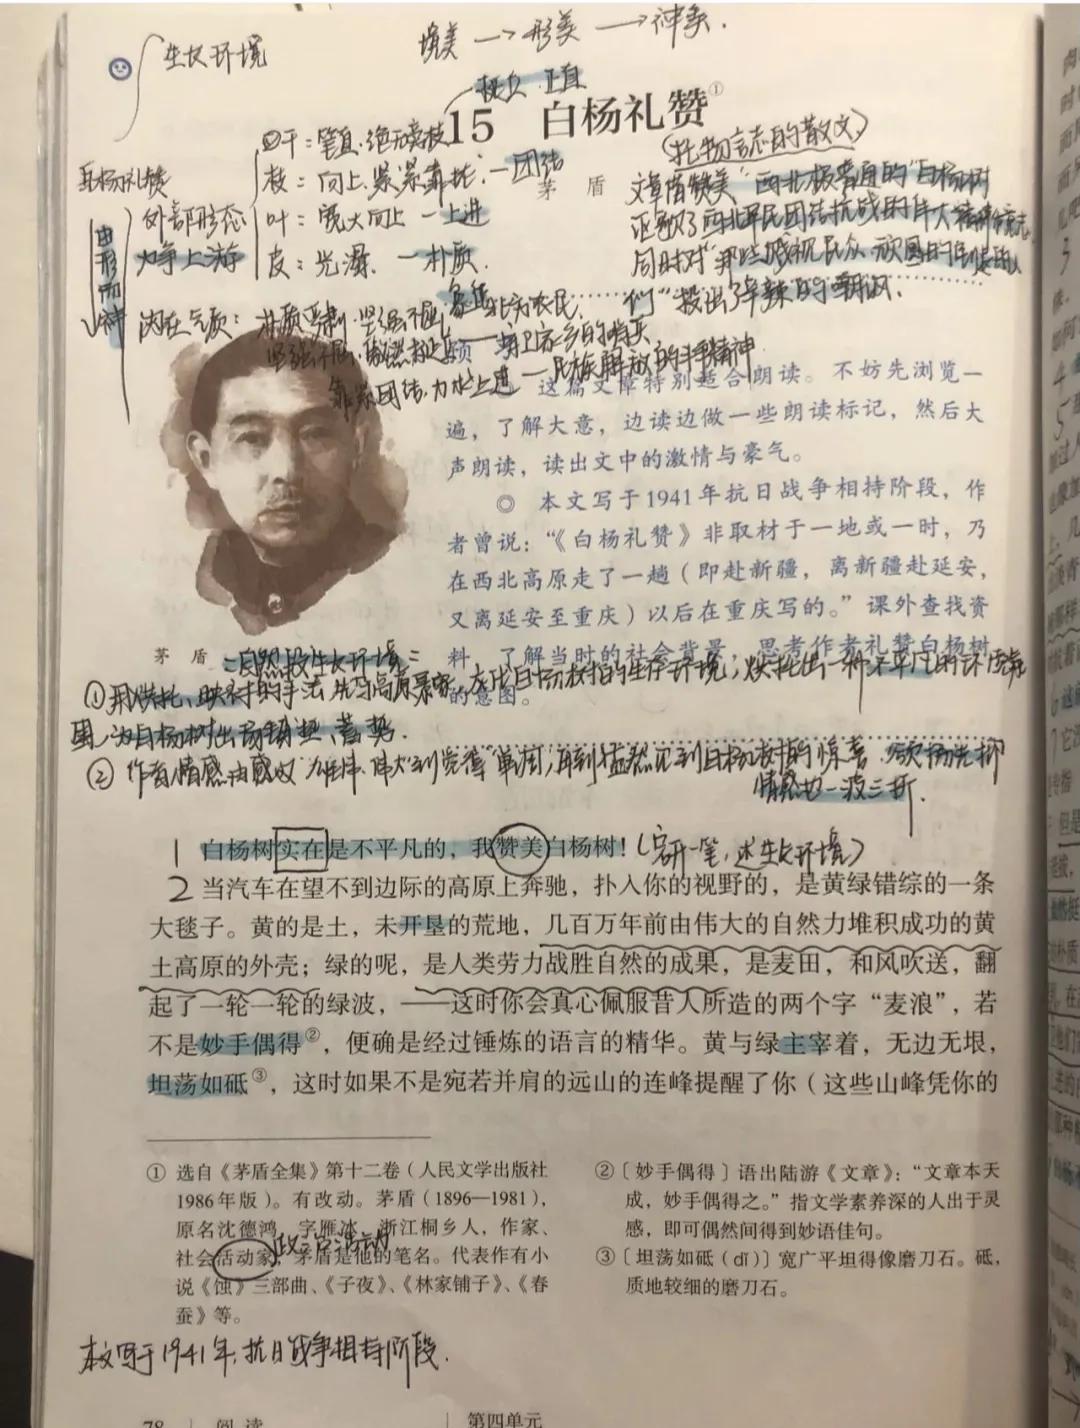 境美→形美→神美.
生长环境
挺久 正直
15 白杨礼赞①
(托物言志的散文)
茅 盾
干:笔直,绝无旁枝
枝:向上,紧紧靠拢,一团结
叶:宽大向上 一上进
皮:光滑. 一朴质.
白杨礼赞
外部形态
力争上游
由形而神
内在气质:朴质严肃 坚强不屈 象征北方农民.
坚强不屈,傲然挺立 守卫家乡的哨兵
靠紧团结,力求上进一民族解放的斗争精神
文章借赞美"西北极普通的"白杨树
讴歌了西北军民团结抗战的伟大精神意志
同时对"那些贱视民众、顽固的倒退的人
们"投出了辛辣的嘲讽.
这篇文章特别适合朗读。不妨先浏览一
遍,了解大意,边读边做一些朗读标记,然后大
声朗读,读出文中的激情与豪气。
◎ 本文写于1941年抗日战争相持阶段,作
者曾说:“《白杨礼赞》非取材于一地或一时,乃
在西北高原走了一趟(即赴新疆,离新疆赴延安,
又离延安至重庆)以后在重庆写的。”课外查找资
料,了解当时的社会背景,思考作者礼赞白杨树
的意图。
茅 盾
二自然段生长环境:
①用烘托、映衬的手法,先写高原景象,在此白杨树的生存环境;烘托出一种不平凡的环境氛
围,为白杨树出场铺垫、蓄势.
②作者情感由感叹"雄伟""伟大"到觉得"单调",再到猛然见到白杨树的惊喜.欲扬先抑
情感也一波三折.
1 白杨树实在是不平凡的,我赞美白杨树!(宕开一笔,述生长环境)
2 当汽车在望不到边际的高原上奔驰,扑入你的视野的,是黄绿错综的一条
大毯子。黄的是土,未开垦的荒地,几百万年前由伟大的自然力堆积成功的黄
土高原的外壳;绿的呢,是人类劳力战胜自然的成果,是麦田,和风吹送,翻
起了一轮一轮的绿波,——这时你会真心佩服昔人所造的两个字“麦浪”,若
不是妙手偶得②,便确是经过锤炼的语言的精华。黄与绿主宰着,无边无垠,
坦荡如砥③,这时如果不是宛若并肩的远山的连峰提醒了你(这些山峰凭你的
① 选自《茅盾全集》第十二卷(人民文学出版社
1986年版)。有改动。茅盾(1896—1981),
原名沈德鸿,字雁冰,浙江桐乡人,作家、
社会活动家,茅盾是他的笔名。代表作有小
说《蚀》三部曲、《子夜》、《林家铺子》、《春
蚕》等。
政治活动
②〔妙手偶得〕语出陆游《文章》:“文章本天
成,妙手偶得之。”指文学素养深的人出于灵
感,即可偶然间得到妙语佳句。
③〔坦荡如砥(dǐ)〕宽广平坦得像磨刀石。砥,
质地较细的磨刀石。
本文写于1941年,抗日战争相持阶段.
78 阅读 第四单元